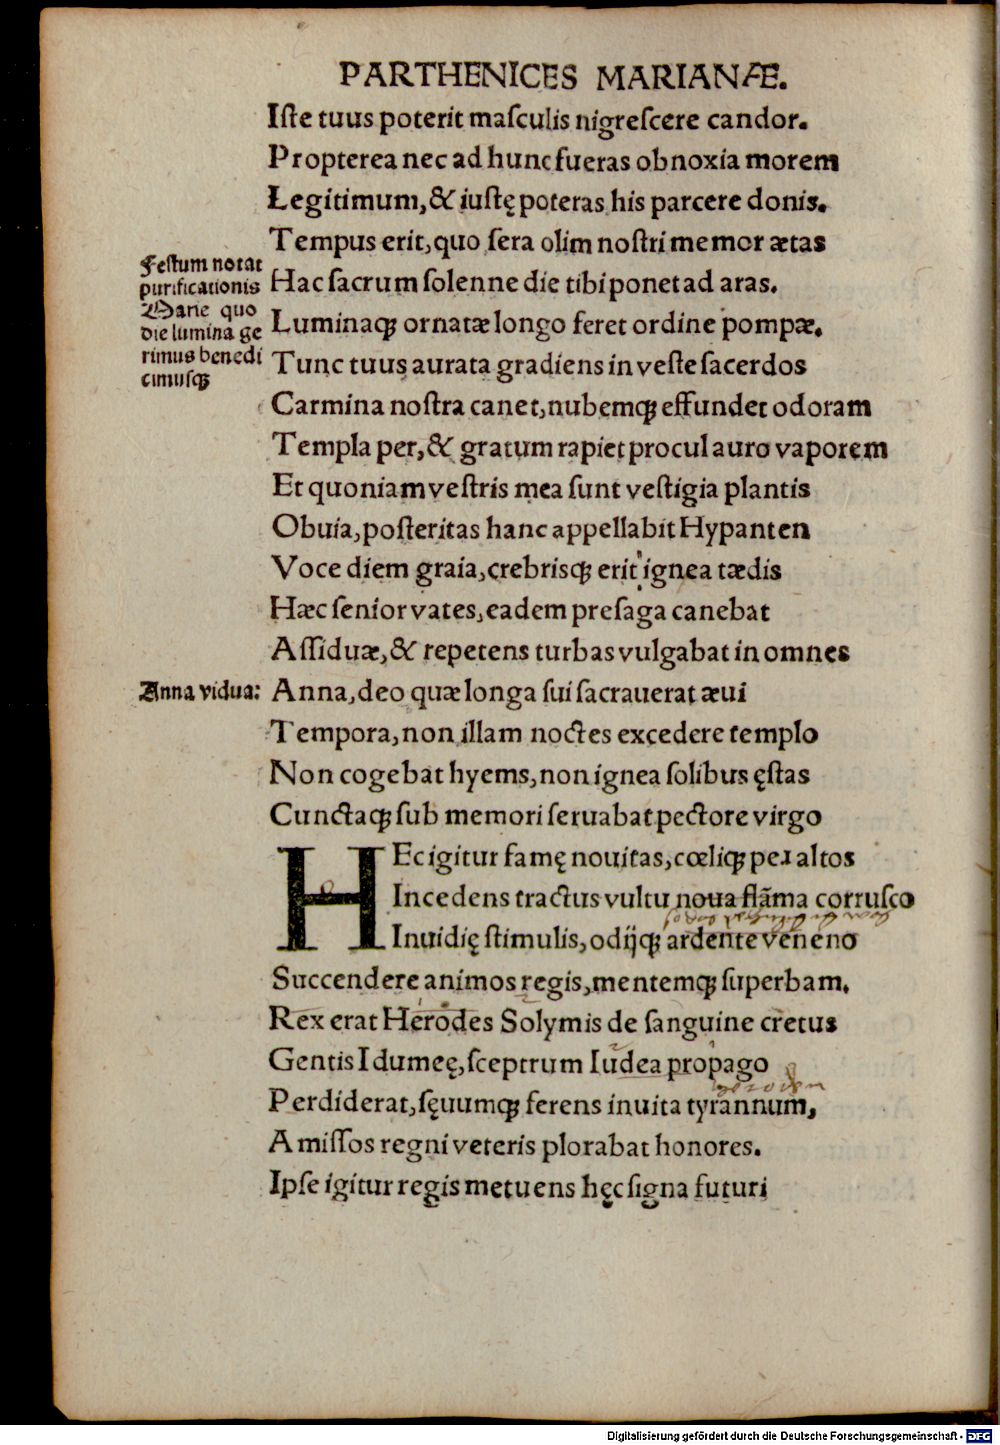 PARTHENICES MARIANÆ.
Iſte tuus poterit maſculis nigreſcere candor.
Propterea nec ad hunc fueras obnoxia morem
Legitimum, & iuſtę poteras his parcere donis.
Tempus erit, quo ſera olim noſtri memor ætas
Feſtum notat
purificationis
Marie quo
die lumina ge
rimus benedi
cimuſqꝫ
Hac ſacrum ſolenne die tibi ponet ad aras.
Luminaqꝫ ornatæ longo feret ordine pompæ.
Tunc tuus aurata gradiens in veſte ſacerdos
Carmina noſtra canet, nubemqꝫ effundet odoram
Templa per, & gratum rapiet procul auro vaporem
Et quoniam veſtris mea ſunt veſtigia plantis
Obuia, poſteritas hanc appellabit Hypanten
Voce diem graia, crebriſqꝫ erit ignea tædis
Hæc ſenior vates, eadem preſaga canebat
Aſſiduæ, & repetens turbas vulgabat in omnes
Anna vidua:
Anna, deo quæ longa ſui ſacrauerat æui
Tempora, non illam noctes excedere templo
Non cogebat hyems, non ignea ſolibus ęſtas
Cunctaqꝫ ſub memori ſeruabat pectore virgo
HEc igitur famę nouitas, cœliqꝫ per altos
Incedens tractus vultu noua flãma corruſco
Inuidię ſtimulis, odijqꝫ ardente veneno
Succendere animos regis, mentemqꝫ ſuperbam.
Rex erat Herodes Solymis de ſanguine cretus
Gentis Idumeę, ſceptrum Iudea propago
Perdiderat, ſęuumqꝫ ferens inuita tyrannum,
Amiſſos regni veteris plorabat honores.
Ipſe igitur regis metuens hęc ſigna futuri
Digitalisierung gefördert durch die Deutsche Forschungsgemeinschaft - DFG